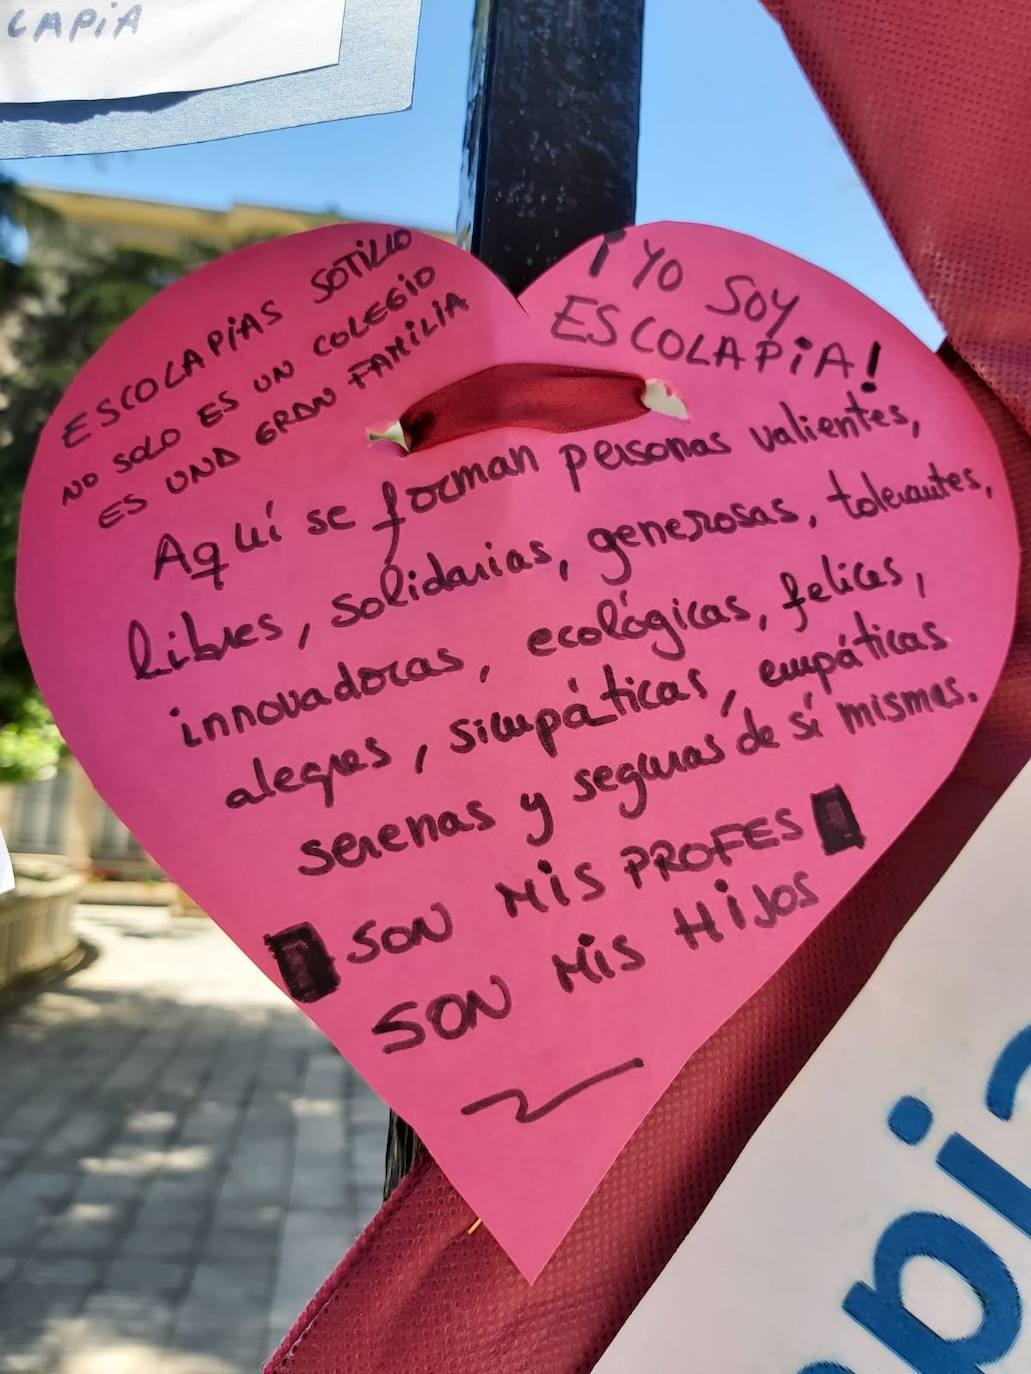 LAPiA
ESCOLAPiAS SOTiLLO
NO SOLO ES UN COLEGIO
ES UNA GRAN FAMILIA
¡YO SOY
ESCOLAPiA!
Aquí se forman personas valientes,
libres, solidarias, generosas, tolerantes,
innovadoras, ecológicas, felices,
alegres, simpáticas, empáticas
serenas y seguras de sí mismas.
SON MiS PROFES
SON MiS HiJOS
pia